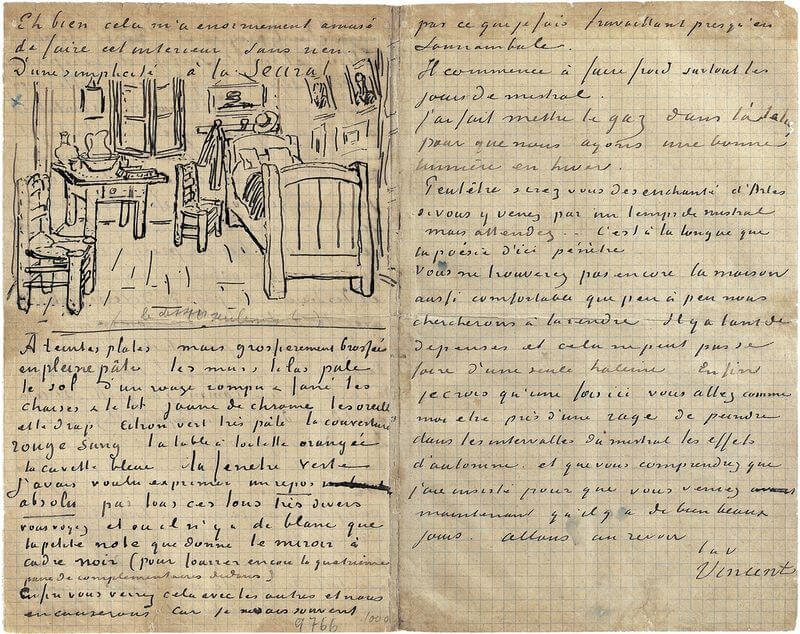 Eh bien cela m'a enormement amusé
de faire cet interieur sans rien.
D'une simplicité à la Seurat
A teintes plates mais grossierement brossées
en pleine pâte les murs lilas pale
le sol d'un rouge rompu & fané les
chaises & le lit jaune de chrome les oreillers
et le drap citron vert très pâle la couverture
rouge sang la table à toilette orangée
la cuvette bleue la fenetre verte
J'avais voulu exprimer un repos
absolu par tous ces tons très divers
vous voyez et où il n'y a de blanc que
la petite note que donne le miroir à
cadre noir (pour fourrer encore la quatrieme
paire de complementaires dedans)
Enfin vous verrez cela avec les autres et nous
en causerons car je ne sais souvent
9766
1000
pas ce que je fais travaillant presqu'en
somnambule.
Il commence à faire froid surtout les
jours de mistral.
J'ai fait mettre le gaz dans l'atelier
pour que nous ayons une bonne
lumière en hiver.
Peutêtre serez vous desenchanté d'Arles
si vous y venez par un temps de mistral
mais attendez .. C'est à la longue que
la poésie d'ici pénètre
Vous ne trouverez pas encore la maison
aussi comfortable que peu à peu nous
chercherons à la rendre Il y a tant de
depenses et cela ne peut pas se
faire d'une seule haleine Enfin
je crois qu'une fois ici vous allez comme
moi etre pris d'une rage de peindre
dans les intervalles du mistral les effets
d'automne. et que vous comprendrez que
j'aie insisté pour que vous veniez
maintenant qu'il y a de bien beaux
jours. allons au revoir
t. à v
Vincent